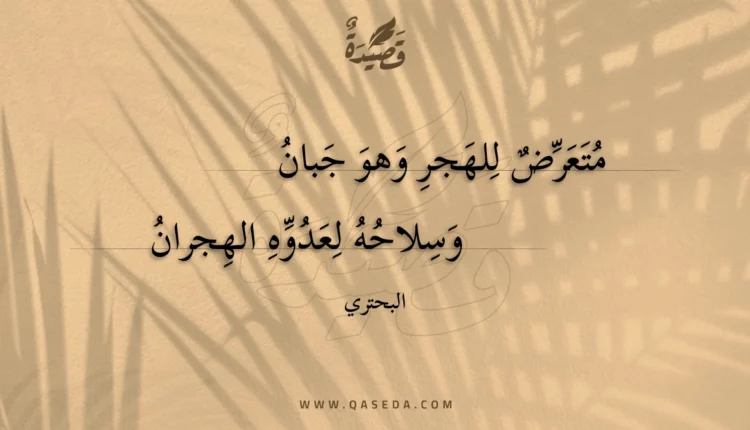 قَصِيدَةٌ
مُتَعَرِّضٌ لِلهَجرِ وَهوَ جَبانُ
وَسِلاحُهُ لِعَدُوِّهِ الهِجرانُ
البحتري
WWW.QASEDA.COM